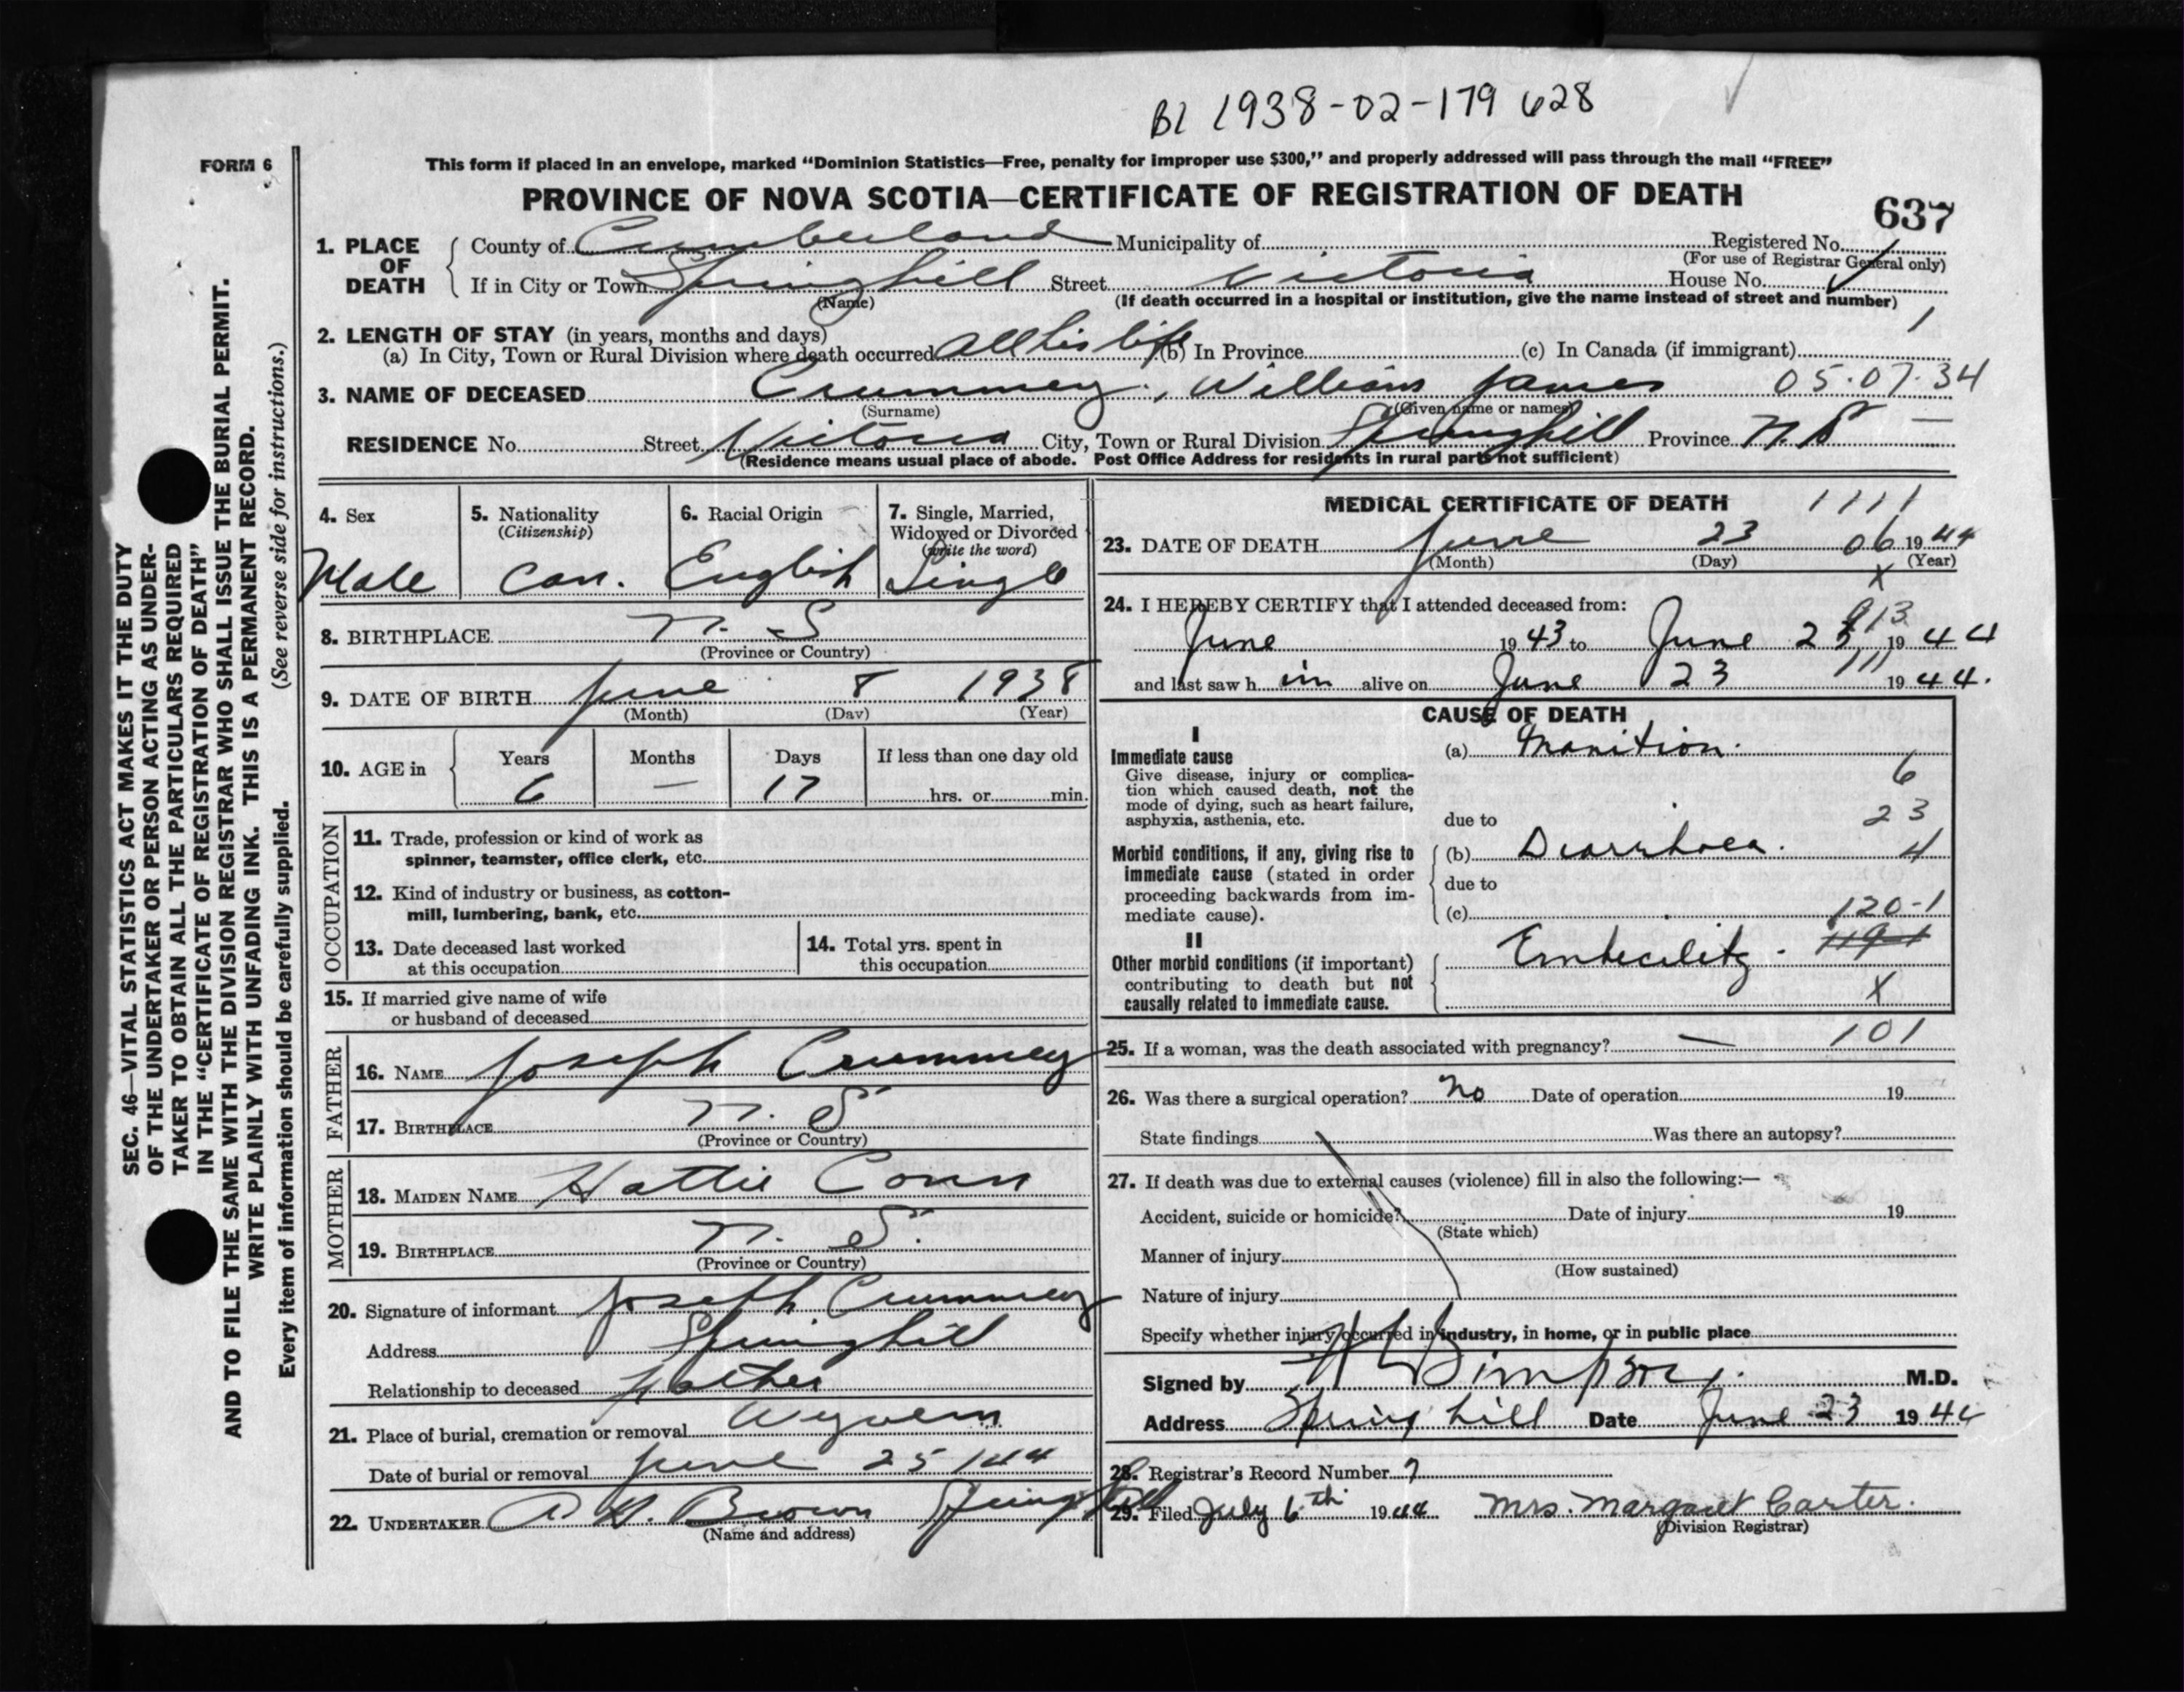 B1 1938-02-179 628
FORM 6
This form if placed in an envelope, marked "Dominion Statistics—Free, penalty for improper use $300," and properly addressed will pass through the mail "FREE"
PROVINCE OF NOVA SCOTIA—CERTIFICATE OF REGISTRATION OF DEATH
637
1. PLACE OF DEATH
County of Cumberland Municipality of Registered No.
(For use of Registrar General only)
If in City or Town Springhill Street Victoria House No.
(Name) (If death occurred in a hospital or institution, give the name instead of street and number)
2. LENGTH OF STAY (in years, months and days)
(a) In City, Town or Rural Division where death occurred All his life (b) In Province (c) In Canada (if immigrant)
3. NAME OF DECEASED Crummey, William James 05.07.34
(Surname) (Given name or names)
RESIDENCE No. Street Victoria City, Town or Rural Division Springhill Province N.S
(Residence means usual place of abode. Post Office Address for residents in rural parts not sufficient)
4. Sex
Male
5. Nationality
(Citizenship)
Can.
6. Racial Origin
English
7. Single, Married,
Widowed or Divorced
(write the word)
Single
8. BIRTHPLACE N. S
(Province or Country)
9. DATE OF BIRTH June 8 1938
(Month) (Day) (Year)
10. AGE in
Years Months Days If less than one day old
6 — 17 hrs. or min.
OCCUPATION
11. Trade, profession or kind of work as
spinner, teamster, office clerk, etc.
12. Kind of industry or business, as cotton-
mill, lumbering, bank, etc.
13. Date deceased last worked
at this occupation
14. Total yrs. spent in
this occupation
15. If married give name of wife
or husband of deceased
FATHER
16. NAME Joseph Crummey
17. BIRTHPLACE N. S
(Province or Country)
MOTHER
18. MAIDEN NAME Hattie Conn
19. BIRTHPLACE N. S.
(Province or Country)
20. Signature of informant Joseph Crummey
Address Springhill
Relationship to deceased Father
21. Place of burial, cremation or removal Wyvern
Date of burial or removal June 25/44
22. UNDERTAKER A. H. Brown Springhill
(Name and address)
MEDICAL CERTIFICATE OF DEATH 1111
23. DATE OF DEATH June 23 06 1944
(Month) (Day) (Year)
X
24. I HEREBY CERTIFY that I attended deceased from:
913
June 1943 to June 23 1944
111
and last saw him alive on June 23 1944.
CAUSE OF DEATH
I
Immediate cause
Give disease, injury or complica-
tion which caused death, not the
mode of dying, such as heart failure,
asphyxia, asthenia, etc.
(a) Inanition.
6
due to 23
Morbid conditions, if any, giving rise to
immediate cause (stated in order
proceeding backwards from im-
mediate cause).
(b) Diarrhoea. 4
due to
(c) 120-1
II
Other morbid conditions (if important)
contributing to death but not
causally related to immediate cause.
Embecility. 119-1
X
25. If a woman, was the death associated with pregnancy? — 101
26. Was there a surgical operation? No Date of operation 19
State findings Was there an autopsy?
27. If death was due to external causes (violence) fill in also the following:—
Accident, suicide or homicide? Date of injury 19
(State which)
Manner of injury
(How sustained)
Nature of injury
Specify whether injury occurred in industry, in home, or in public place
Signed by Simpson M.D.
Address Springhill Date June 23 1944
28. Registrar's Record Number 7
29. Filed July 6th 1944 Mrs. Margaret Carter.
(Division Registrar)
SEC. 46—VITAL STATISTICS ACT MAKES IT THE DUTY
OF THE UNDERTAKER OR PERSON ACTING AS UNDER-
TAKER TO OBTAIN ALL THE PARTICULARS REQUIRED
IN THE "CERTIFICATE OF REGISTRATION OF DEATH"
AND TO FILE THE SAME WITH THE DIVISION REGISTRAR WHO SHALL ISSUE THE BURIAL PERMIT.
WRITE PLAINLY WITH UNFADING INK. THIS IS A PERMANENT RECORD.
Every item of information should be carefully supplied. (See reverse side for instructions.)